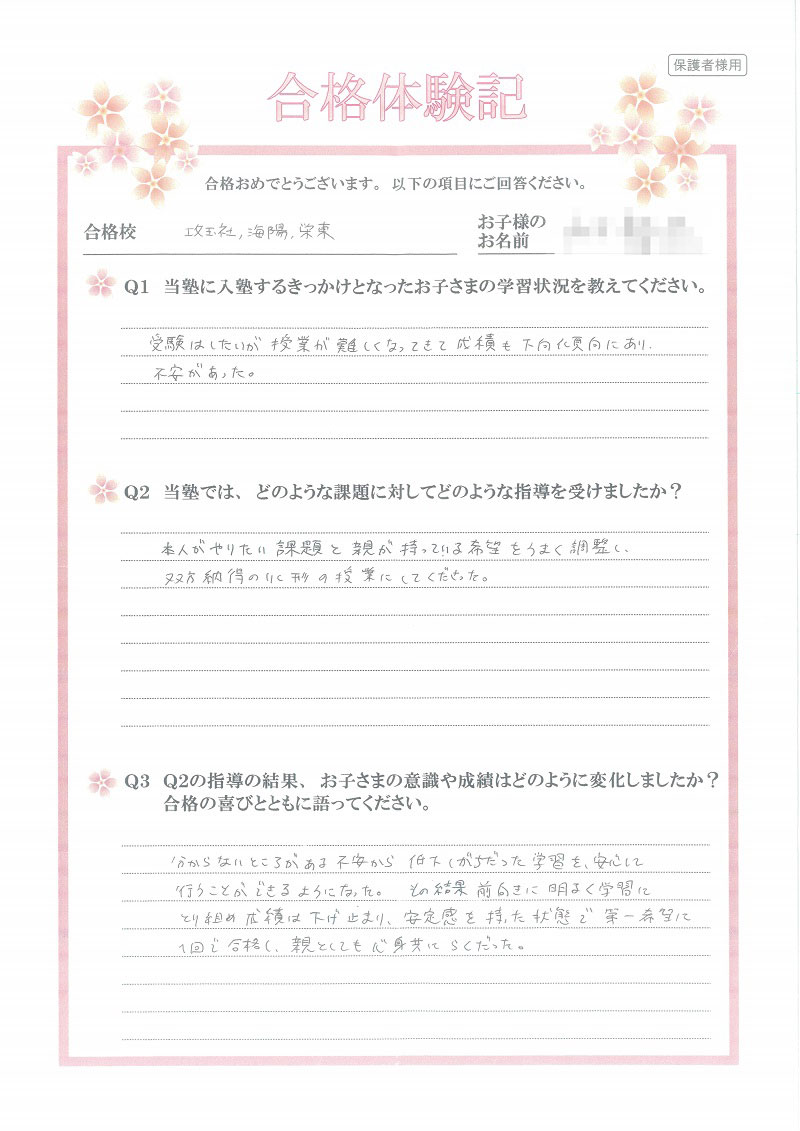 保護者様用
合格体験記
合格おめでとうございます。以下の項目にご回答ください。
合格校 攻玉社, 海陽, 栄東
お子様の
お名前
Q1 当塾に入塾するきっかけとなったお子さまの学習状況を教えてください。
受験はしたいが授業が難しくなってきて成績も下向化傾向にあり、
不安があった。
Q2 当塾では、どのような課題に対してどのような指導を受けましたか？
本人がやりたい課題と親が持っている希望をうまく調整し、
双方納得のいく形の授業にしてくださった。
Q3 Q2の指導の結果、お子さまの意識や成績はどのように変化しましたか？
合格の喜びとともに語ってください。
分からないところがある不安から低下しがちだった学習を、安心して
行うことができるようになった。その結果前向きに明るく学習に
とり組め成績は下げ止まり、安定感を持った状態で第一希望に
1回で合格し、親としても心身共にらくだった。